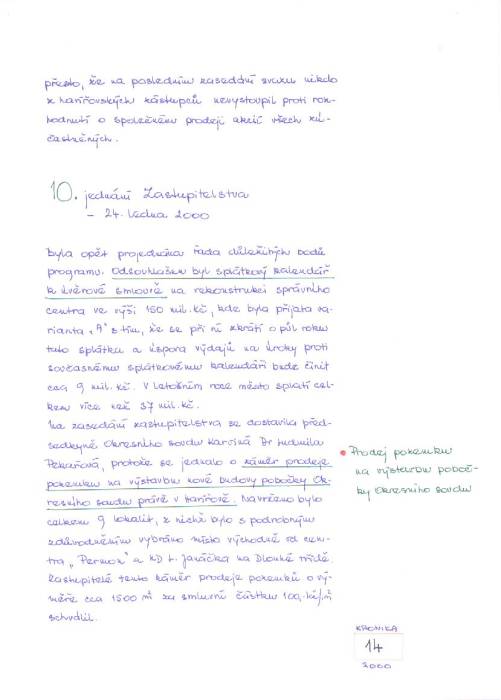 přesto, že na posledním zasedání svazu nikdo
z havířovských zástupců nevystoupil proti roz-
hodnutí o společném prodeji akcií všech zú-
častněných.
10. jednání Zastupitelstva
- 24. ledna 2000
Byla opět projednána řada důležitých bodů
programu. Odsouhlašen byl splátkový kalendář
k úvěrové smlouvě na rekonstrukci správního
centra ve výši 150 mil. Kč, kde byla přijata va-
rianta "A" s tím, že se při ní zkrátí o půl roku
tuto splátku a úspora výdajů na úroky proti
současnému splátkovému kalendáři bude činit
cca 9 mil. Kč. V letošním roce město splatí cel-
kem více než 37 mil. Kč.
Na zasedání zastupitelstva se dostavila před-
sedkyně Okresního soudu Karviná Dr Ludmila
Pekařová, protože se jednalo o záměr prodeje
pozemku na výstavbu nové budovy pobočky Ok-
resního soudu právě v Havířově. Navrženo bylo
celkem 9 lokalit, z nichž bylo s podrobným
zdůvodněním vybráno místo východně od cen-
tra "Permon" a KD L. Janáčka na Dlouhé třídě.
Zastupitelé tento záměr prodeje pozemků o vý-
měře cca 1500 m² za smluvní částku 100,-Kč/m²
schválil.
Prodej pozemku
na výstavbu poboč-
ky Okresního soudu
KRONIKA
14
2000